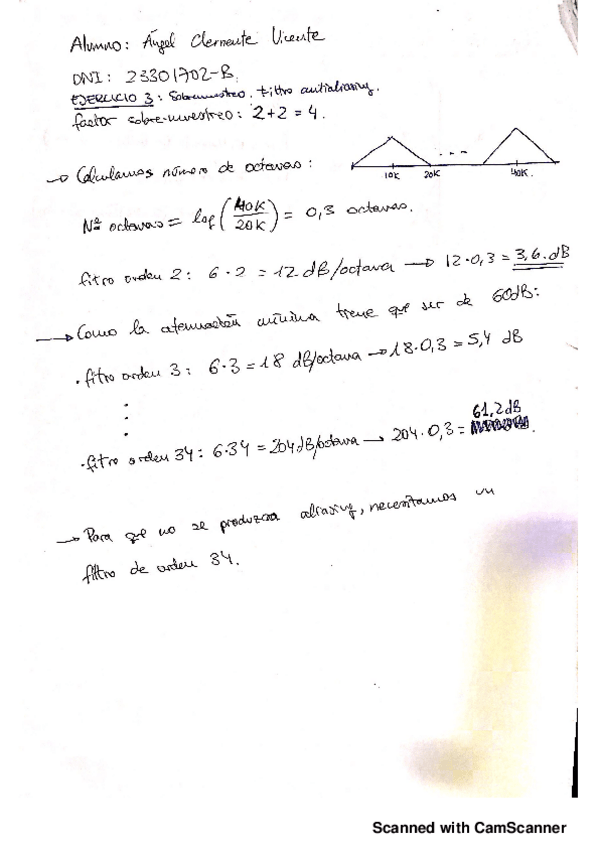 Alumno: Ángel Clemente Vicente
DNI: 23301702-B.
EJERCICIO 3: Sobremuestreo. Filtro antialiasing.
factor sobre-muestreo: 2+2 = 4.
→ Calculamos número de octavas:
10K 20K ... 40K.
Nº octavas = log (40K / 20K) = 0,3 octavas.
filtro orden 2: 6·2 = 12 dB/octava → 12·0,3 = 3,6 dB
→ Como la atenuación mínima tiene que ser de 60dB:
· filtro orden 3: 6·3 = 18 dB/octava → 18·0,3 = 5,4 dB
61,2 dB
· filtro orden 34: 6·34 = 204 dB/octava → 204·0,3 = .
→ Para que no se produzca aliasing, necesitamos un
filtro de orden 34.
Scanned with CamScanner